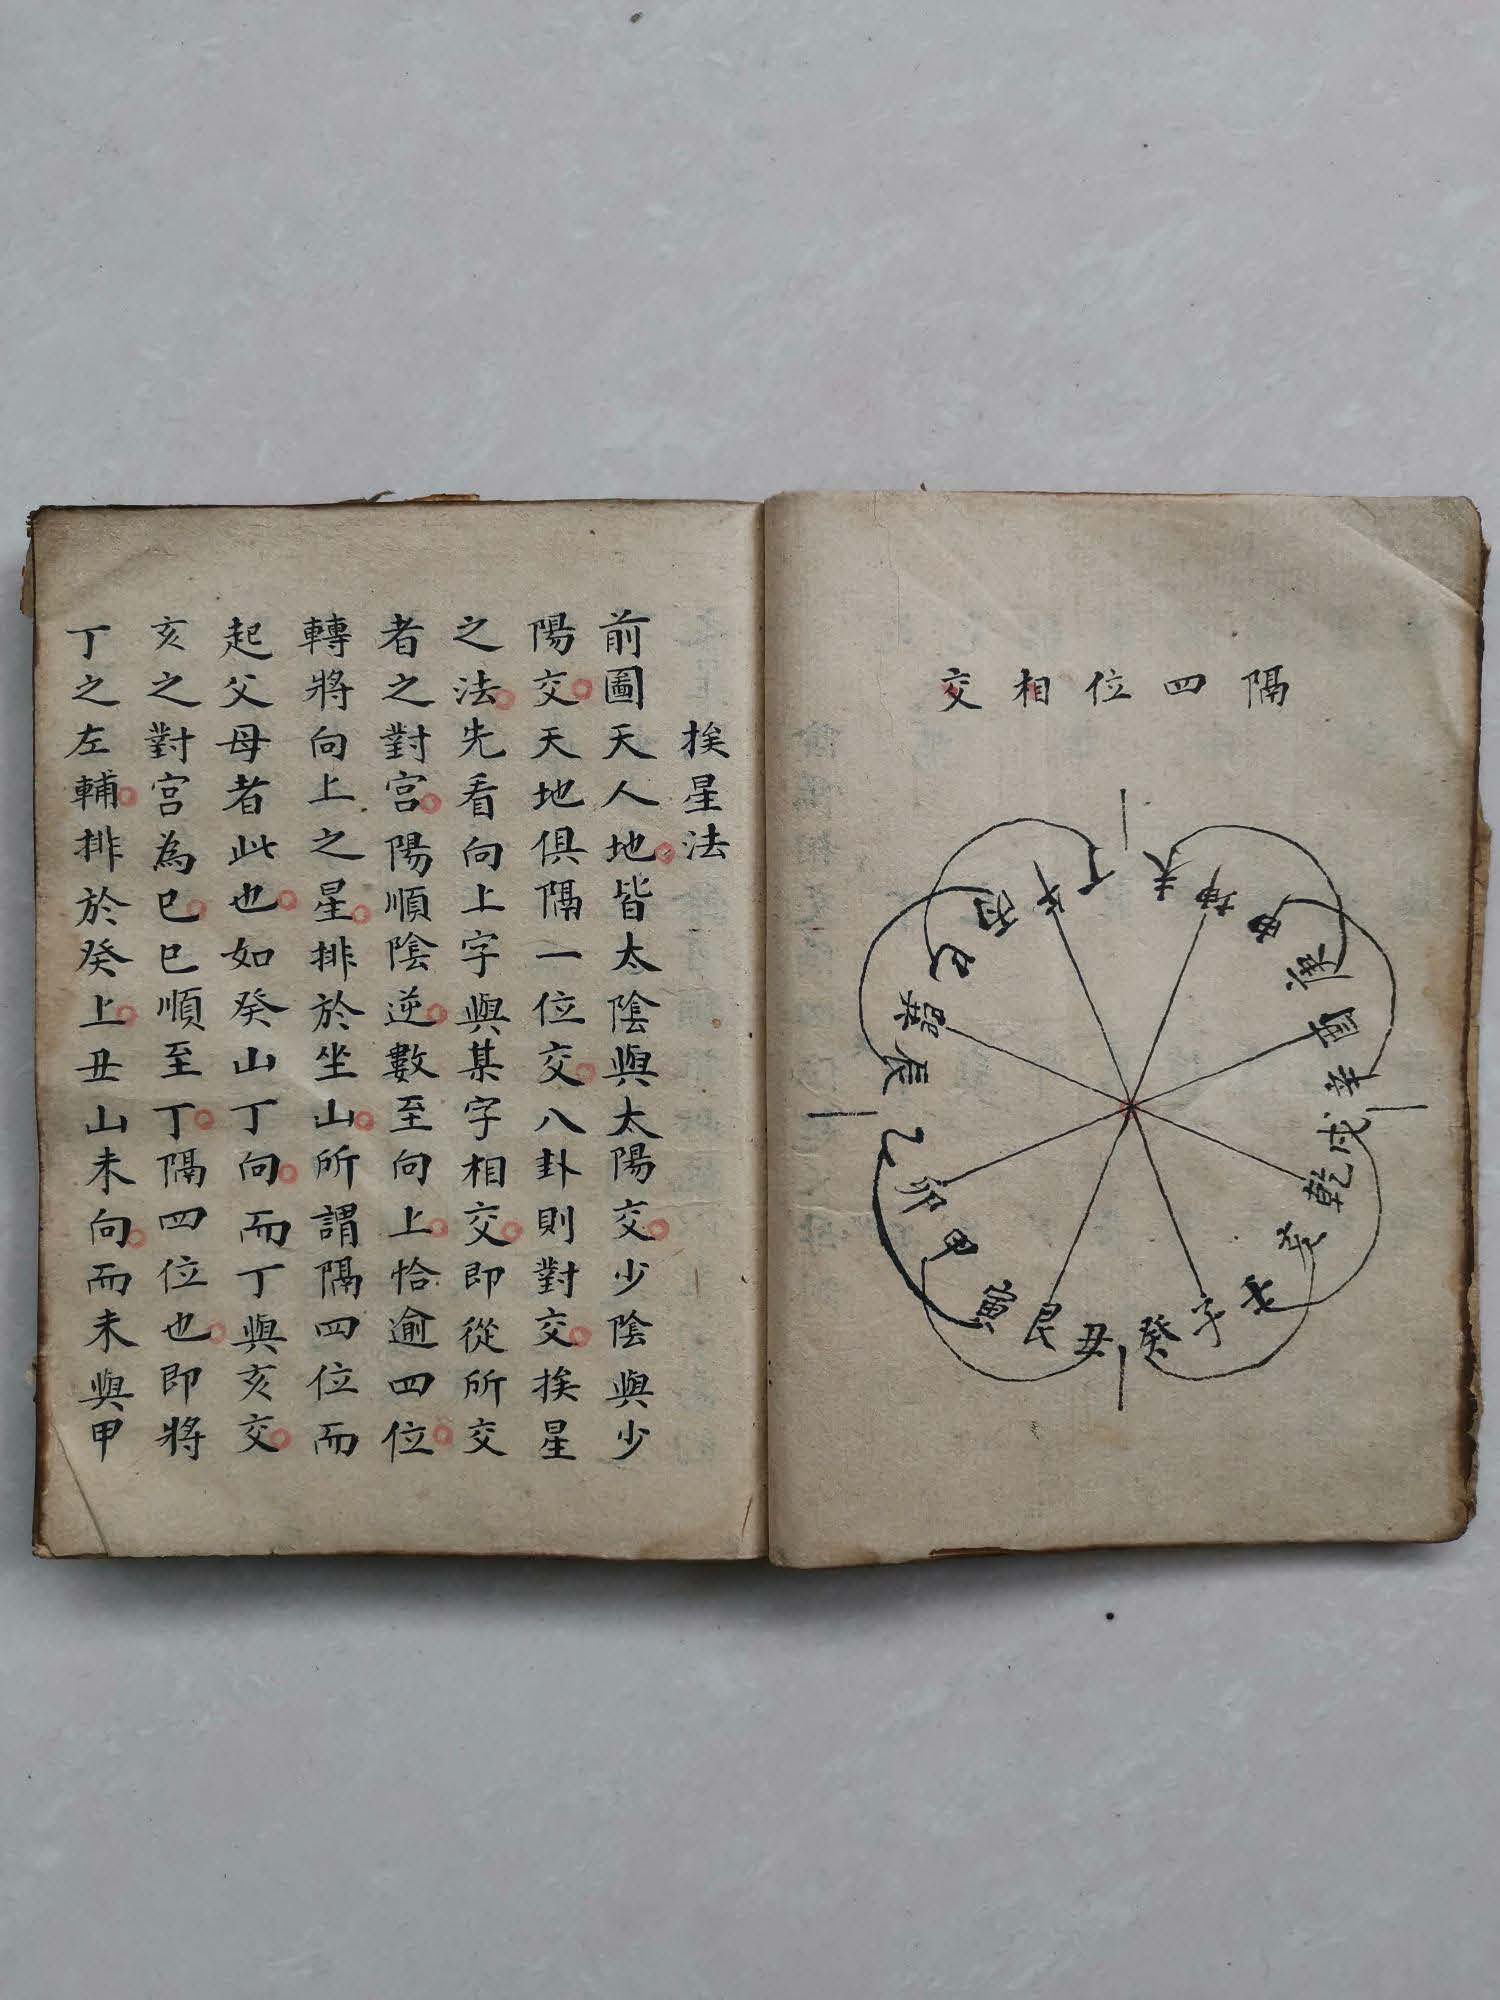 隔四位相交
丁
未
坤
申
庚
酉
辛
戌
乾
亥
壬
子
癸
丑
艮
寅
甲
卯
乙
辰
巽
巳
丙
午
挨星法
前圖天人地皆太陰與太陽交少陰與少
陽交天地俱隔一位交八卦則對交挨星
之法先看向上字與某字相交即從所交
者之對宮陽順陰逆數至向上恰逾四位
轉將向上之星排於坐山所謂隔四位而
起父母者此也如癸山丁向而丁與亥交
亥之對宮為巳巳順至丁隔四位也即將
丁之左輔排於癸上丑山未向而未與甲